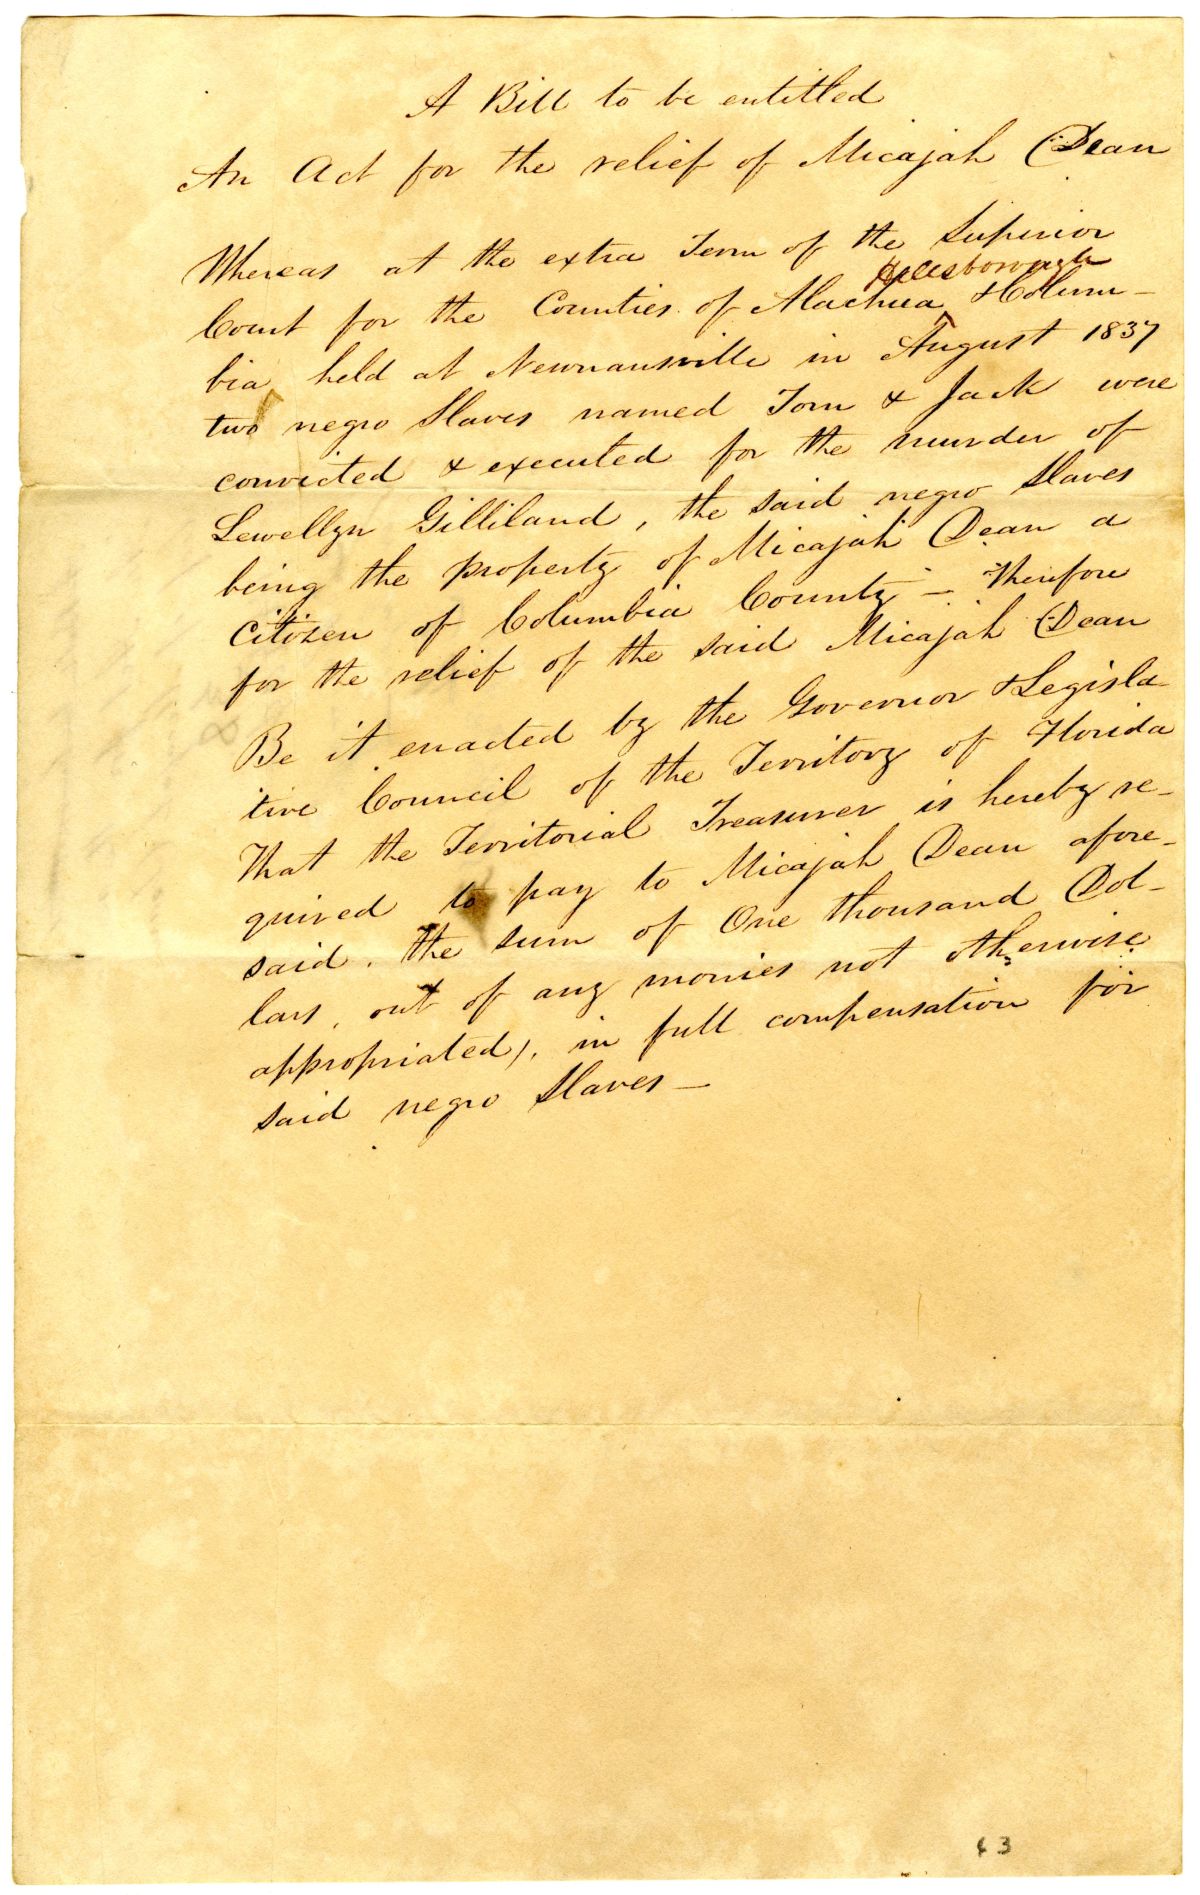 A Bill to be entitled
An Act for the relief of Micajah Dean
Whereas at the extra Term of the Superior
Hillsborough
Court for the Counties of Alachua & Colum-
bia held at Newnansville in August 1837
two negro Slaves named Tom & Jack were
convicted & executed for the murder of
Lewellyn Gilliland, the said negro Slaves
being the property of Micajah Dean a
Citizen of Columbia County - Therefore
for the relief of the said Micajah Dean
Be it enacted by the Governor & Legisla
tive Council of the Territory of Florida
That the Territorial Treasurer is hereby re-
quired to pay to Micajah Dean afore-
said, the sum of One thousand Dol-
lars, out of any monies not otherwise
appropriated, in full compensation for
said negro Slaves-
63